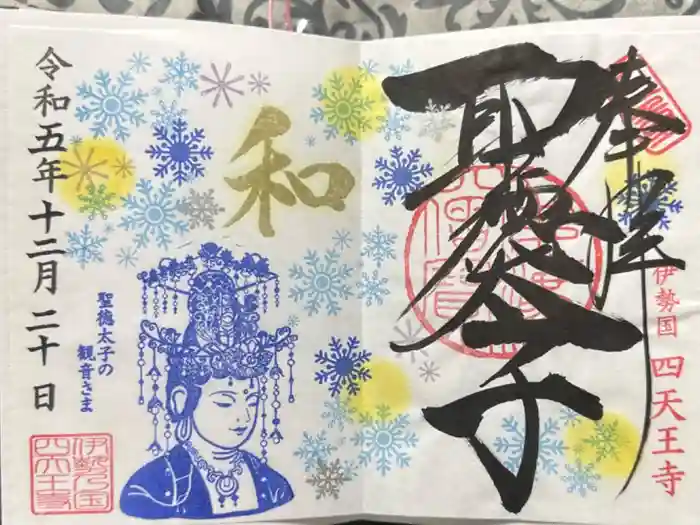 奉拝
伊勢国 四天王寺
聖徳太子
和
聖徳太子の
観音さま
令和五年十二月二十日
伊勢乃国
四天王寺